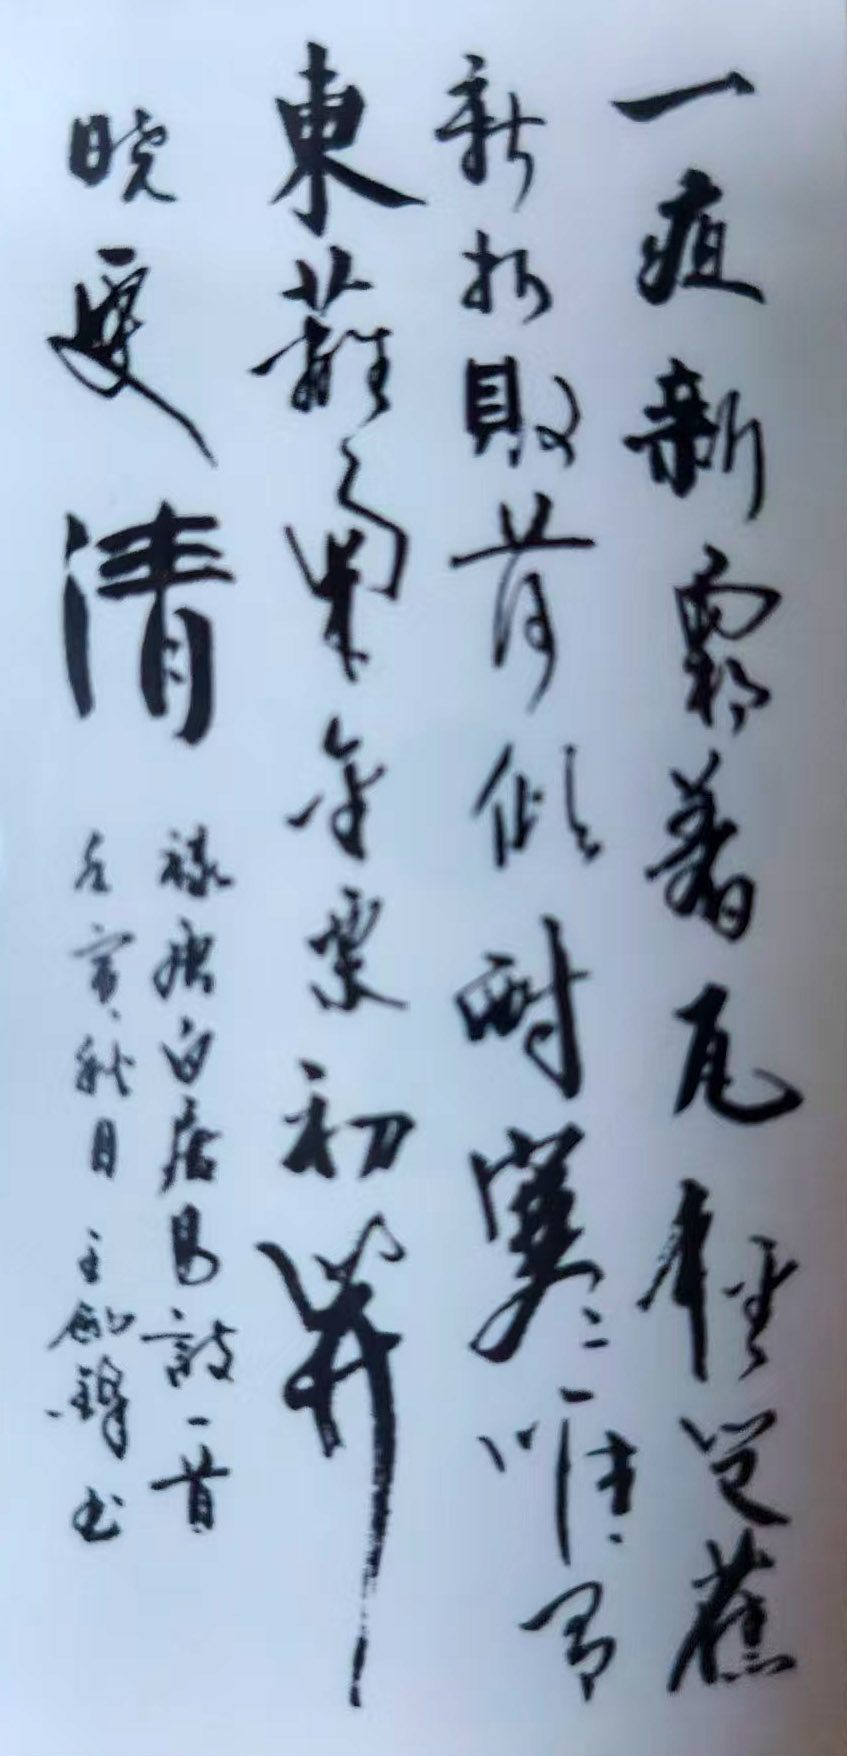 一夜新霜著瓦輕芭蕉
新折敗荷傾耐寒唯有
東蘺菊金粟初開
晓更清
録唐白居易詩一首
壬寅秋月 王鋒书